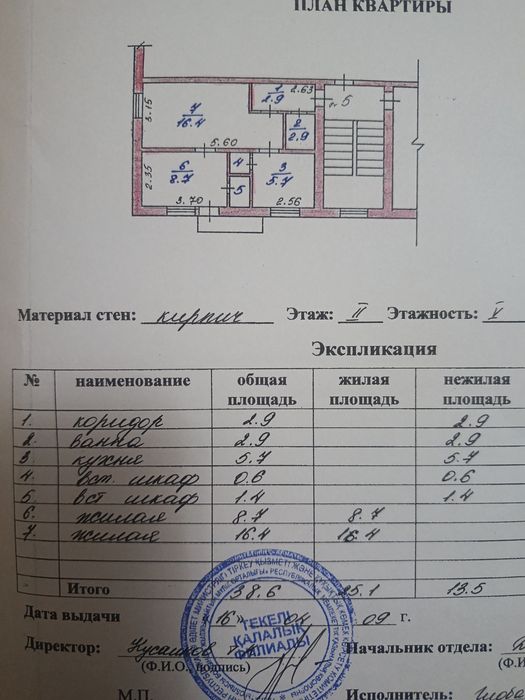 ПЛАН КВАРТИРЫ
1
2.9
2.63
5
7
16.4
3.15
2
2.9
5.60
6
8.7
4
3
5.7
2.35
5
3.70
2.56
Материал стен: кирпич Этаж: II Этажность: V
Экспликация
№ наименование общая площадь жилая площадь нежилая площадь
1. коридор 2.9 2.9
2. ванна 2.9 2.9
3. кухня 5.7 5.7
4. вст. шкаф 0.6 0.6
5. вст шкаф 1.4 1.4
6. жилая 8.7 8.7
7. жилая 16.4 16.4
Итого 38.6 25.1 13.5
Дата выдачи "16" 04 09 г.
Директор: Начальник отдела:
(Ф.И.О., подпись) (Ф.И
М.П. Исполнитель:
ТЕКЕЛІ
ҚАЛАЛЫҚ
ФИЛИАЛЫ